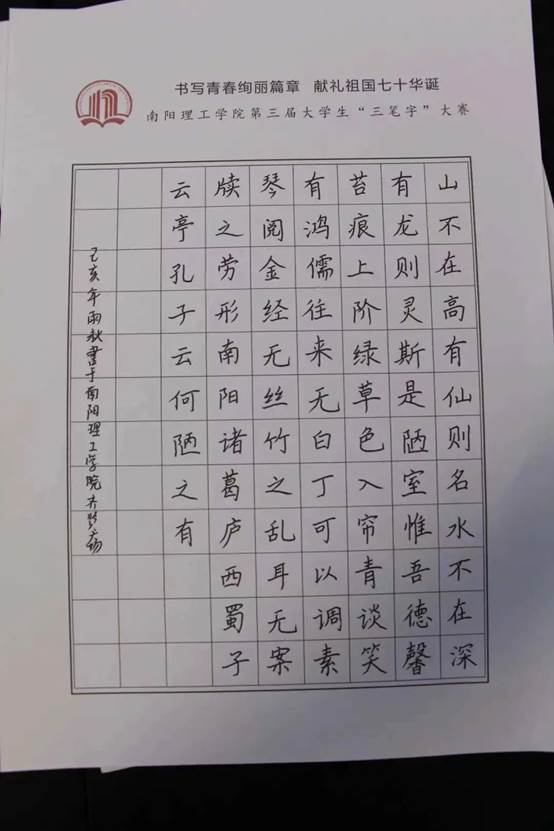 书写青春绚丽篇章 献礼祖国七十华诞
南阳理工学院第三届大学生“三笔字”大赛
山不在高有仙则名水不在深
有龙则灵斯是陋室惟吾德馨
苔痕上阶绿草色入帘青谈笑
有鸿儒往来无白丁可以调素
琴阅金经无丝竹之乱耳无案
牍之劳形南阳诸葛庐西蜀子
云亭孔子云何陋之有
己亥年雨秋书于南阳理工学院